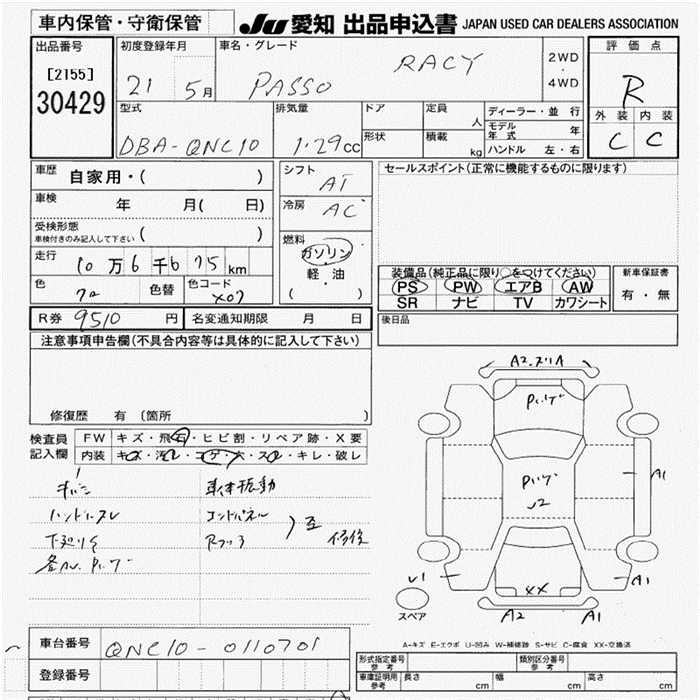 車内保管・守衛保管
JU愛知 出品申込書 JAPAN USED CAR DEALERS ASSOCIATION
出品番号
[2155]
30429
初度登録年月
21 5月
車名・グレード
PASSO RACY
2WD
・
4WD
評価点
R
外装 内装
C C
型式
DBA-QNC10
排気量
1.29cc
ドア
形状
定員 人
積載 kg
ディーラー・並行
モデル年式 年
ハンドル 左・右
車歴 自家用・( )
車検 年 月( 日)
受検形態
車検付きのみ記入して下さい ( )
走行 10万6千675km
色 色替 色コード
X07
シフト AT
冷房 AC
燃料
ガソリン
軽・油
( )
セールスポイント(正常に機能するものに限ります)
装備品(純正品に限り○をつけてください)
PS PW エアB AW
SR ナビ TV カワシート
新車保証書
有・無
R券 9510円 名変通知期限 月 日
後日品
注意事項申告欄(不具合内容等は具体的に記入して下さい)
修復歴 有 (箇所
検査員
記入欄
FW キズ・飛石・ヒビ割・リペア跡・X要
内装 キズ・汚れ・コゲ・穴・スレ・キレ・破レ
車体振動
ハンドルスレ コンドパネル
下廻りサ Rフロア 歪 修復
A2 ズリ A
A1
U1
A1
XX
A2 A1
スペア
A-キズ E-エクボ U-凹み W-補修跡 S-サビ C-腐食 XX-交換済
車台番号 QNC10-0110701
登録番号
形式指定番号
参考
類別区分番号
参考
車庫証明用
参考
長さ cm 幅 cm 高さ cm